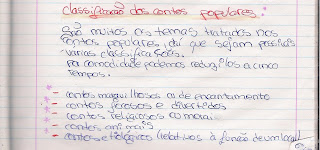 classificação dos contos populares.
São muitos os temas tratados nos
contos populares, daí que sejam possíveis
várias classificações.
por comodidade podemos reduzi-los a cinco
tempos.
- contos maravilhosos ou de encantamento
- contos jocosos e divertidos
- contos religiosos ou morai
- contos animais
- contos etiológicos (relativos à função de um local